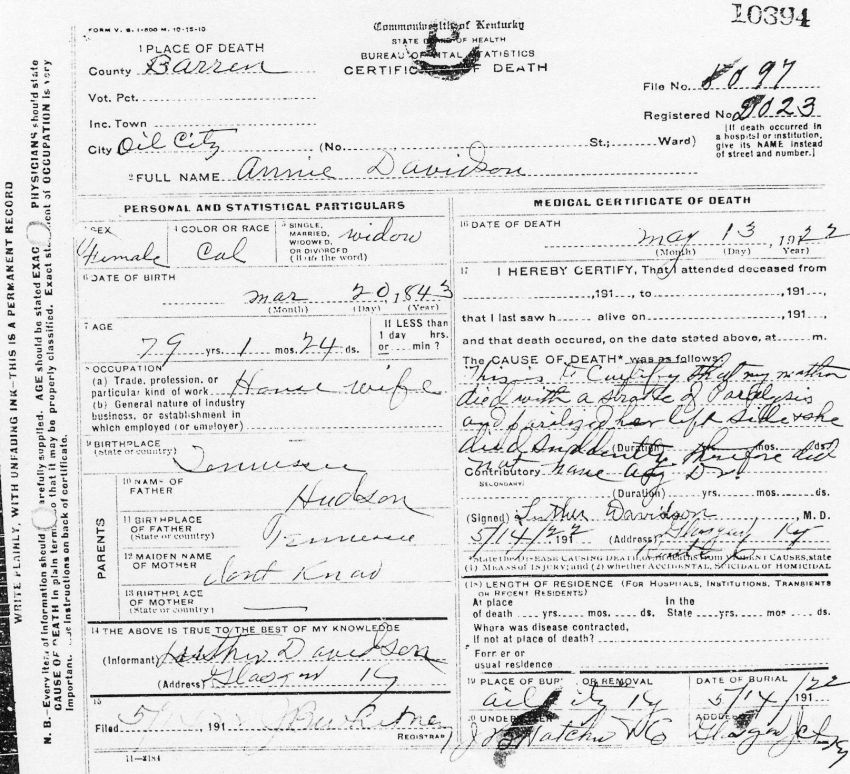 10394
FORM V. S. 1-500 M. 10-15-10
Commonwealth of Kentucky
STATE BOARD OF HEALTH
BUREAU OF VITAL STATISTICS
CERTIFICATE OF DEATH
1 PLACE OF DEATH
County Barren
Vot. Pct.
Inc. Town
City Oil City (No. St.; Ward)
File No. 8097
Registered No. 2023
[If death occurred in a hospital or institution, give its NAME instead of street and number.]
2 FULL NAME Annie Davidson
PERSONAL AND STATISTICAL PARTICULARS
3 SEX Female
4 COLOR OR RACE Col
5 SINGLE, MARRIED, WIDOWED, OR DIVORCED (Write the word) widow
6 DATE OF BIRTH
Mar 20, 1843
(Month) (Day) (Year)
7 AGE
79 yrs. 1 mos. 24 ds.
If LESS than 1 day hrs. or min?
8 OCCUPATION
(a) Trade, profession, or particular kind of work House wife
(b) General nature of industry business, or establishment in which employed (or employer)
9 BIRTHPLACE
(State or country) Tennessee
PARENTS
10 NAME OF FATHER Hudson
11 BIRTHPLACE OF FATHER (State or country) Tennessee
12 MAIDEN NAME OF MOTHER Dont Know
13 BIRTHPLACE OF MOTHER (State or country)
14 THE ABOVE IS TRUE TO THE BEST OF MY KNOWLEDGE
(Informant) Luther Davidson
(Address) Glasgow Ky
15
Filed 5/14, 191
REGISTRAR
11-3184
MEDICAL CERTIFICATE OF DEATH
16 DATE OF DEATH
May 13, 1922
(Month) (Day) (Year)
17 I HEREBY CERTIFY, That I attended deceased from
, 191 , to , 191 ,
that I last saw h alive on , 191 ,
and that death occured, on the date stated above, at m.
The CAUSE OF DEATH* was as follows:
This is to Certify that my mother
died with a stroke of Paralysis
and parilized her left side & she
died suddently therefore did
(Duration) yrs. mos. ds.
Contributory not have any Dr.
SECONDARY
(Duration) yrs. mos. ds.
(Signed) Luther Davidson, M. D.
5/14/22 (Address) Glasgow Ky
*State the DISEASE CAUSING DEATH, or deaths from VIOLENT CAUSES, state
(1) MEANS of INJURY; and (2) whether ACCIDENTAL, SUICIDAL or HOMICIDAL
(18) LENGTH OF RESIDENCE (FOR HOSPITALS, INSTITUTIONS, TRANSIENTS OR RECENT RESIDENTS)
At place of death yrs. mos. ds. In the State yrs. mos. ds.
Where was disease contracted,
If not at place of death?
Former or
usual residence
19 PLACE OF BURIAL OR REMOVAL
Oil City Ky
DATE OF BURIAL
5/14, 1922
20 UNDERTAKER
ADDRESS
Glasgow Jct Ky
WRITE PLAINLY, WITH UNFADING INK—THIS IS A PERMANENT RECORD
N. B.—Every item of information should carefully supplied. AGE should be stated EXAC PHYSICIANS should state
CAUSE OF DEATH in plain term so that it may be properly classified. Exact statement of OCCUPATION is very
important. instructions on back of certificate.